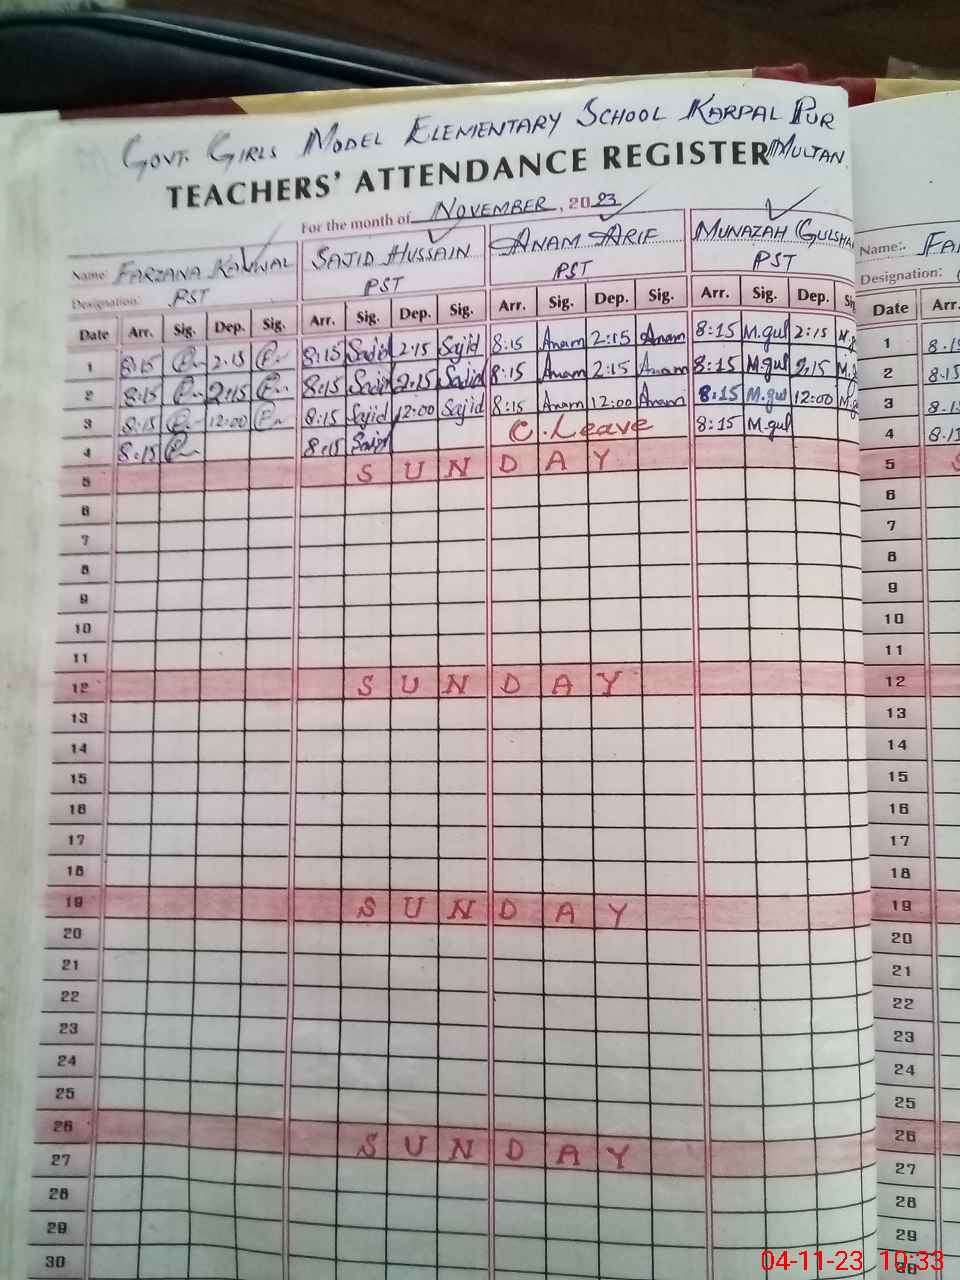 GOVT. GIRLS MODEL ELEMENTARY SCHOOL KARPAL PUR
MULTAN.
TEACHERS' ATTENDANCE REGISTER
For the month of NOVEMBER, 2023
Name: FARZANA KAWWAL SAJID HUSSAIN ANAM ARIF MUNAZAH GULSHA Name:. FA
Designation: PST PST PST PST Designation:
Date Arr. Sig. Dep. Sig. Arr. Sig. Dep. Sig. Arr. Sig. Dep. Sig. Arr. Sig. Dep. Si Date Arr.
1 8:15 2:15 8:15 Sajid 2:15 Sajid 8:15 Anam 2:15 Anam 8:15 M.gul 2:15 M.g 1 8:15
2 8:15 2:15 8:15 Sajid 2:15 Sajid 8:15 Anam 2:15 Anam 8:15 M.gul 2:15 M. 2 8:15
3 8:15 12:00 8:15 Sajid 12:00 Sajid 8:15 Anam 12:00 Anam 8:15 M.gul 12:00 M.g 3 8:15
4 8:15 8:15 Sajid C.Leave 8:15 M.gul 4 8:15
5 SUNDAY 5 S
6 6
7 7
8 8
9 9
10 10
11 11
12 SUNDAY 12
13 13
14 14
15 15
16 16
17 17
18 18
19 SUNDAY 19
20 20
21 21
22 22
23 23
24 24
25 25
26 SUNDAY 26
27 27
28 28
29 29
30 30
04-11-23 10:33